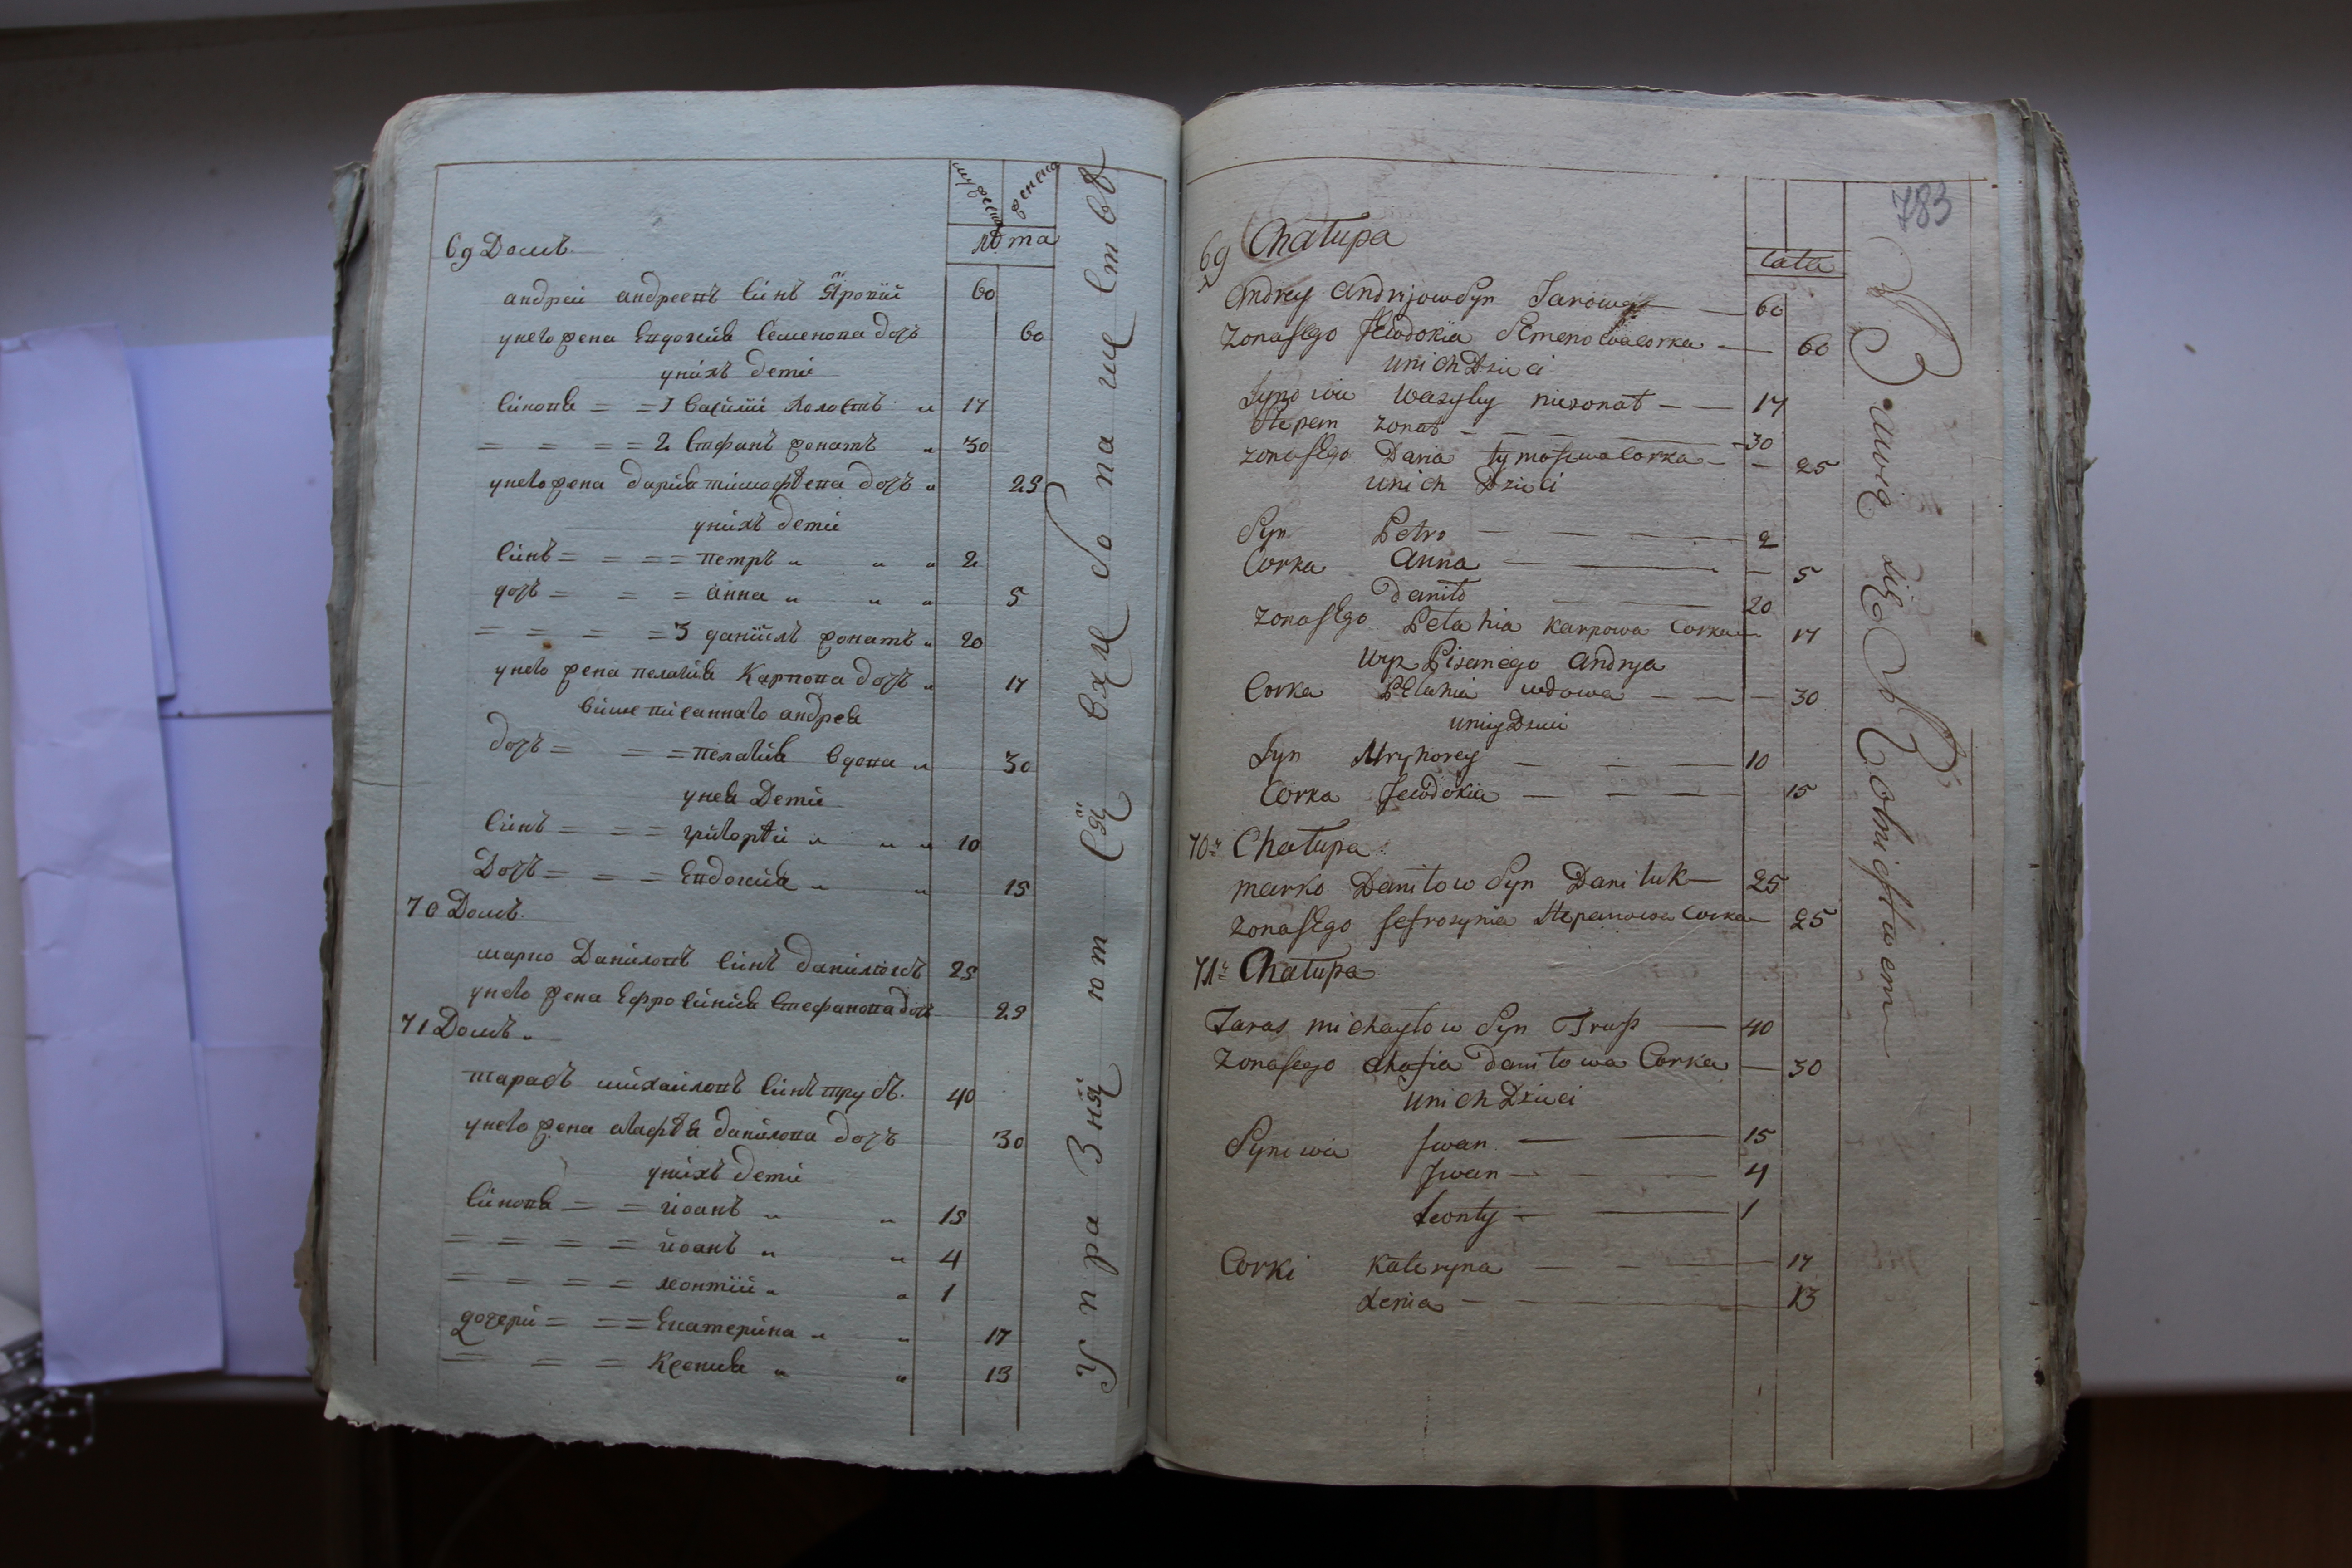 мужеска женска
лѣта
69 Домъ
андрей андреевъ синъ Яровїй 60
унего жена Евдокия Семенова дочъ 60
унихъ дети
синовя = = 1 Василїй холостъ " 17
= = = = 2 Стефанъ жонатъ " 30
унего жена дария тимофѣева дочъ " 25
унихъ дети
синъ = = = = петръ " " " 2
дочъ = = = анна " " " 5
= = = = 3 данїилъ жонатъ " 20
унего жена пелагия Карпова дочъ " 17
вишеписаннаго андрея
дочъ = = = пелагия вдова " 30
унея Дети
синъ = = = григорѣи " " " 10
Дочъ = = = Евдокия " " 15
70 Домъ
марко Даниловъ синъ данилюкъ 25
унего жена Ефросиния Стефанова дочъ 25
71 Домъ "
тарасъ михайловъ синъ трусъ 40
унего жена агафѣя данилова дочъ 30
унихъ дети
синовя = = иоанъ " " 15
= = = = иоанъ " " 4
= = = = леонтїй " " 1
дочери = = = Екатерина " " 17
= = = Ксения " " 13
Упражняются вхлебопашествѣ
783
Lata
69 Chałupa
Andrey Andrijow Syn Jarowy 60
Zona Jego Jewdokia Semenowa Corka 60
Unich Dzieci
Synowie Wasyly niezonat 17
Stepan zonat 30
Zona Jego Daria tymofiewa Corka 25
Unich Dzieci
Syn Petro 2
Corka Anna 5
Daniło 20
Zona Jego Pelahia Karpowa Corka 17
Wyz Pisanego Andrya
Corka Pelahia wdowa 30
Uniey Dzieci
Syn Hryhorey 10
Corka Jewdokia 15
70 Chałupa
Marko Daniłow Syn Daniluk 25
Zona Jego Jefrosynia Stepanowa Corka 25
71 Chałupa
Taras Michayłow Syn Trus 40
Zona Jego Ahafia Daniłowa Corka 30
Unich Dzieci
Syniwie Jwan 15
Jwan 4
Leonty 1
Corki Kateryna 17
Xenia 13
Bawią się Rolnictwem